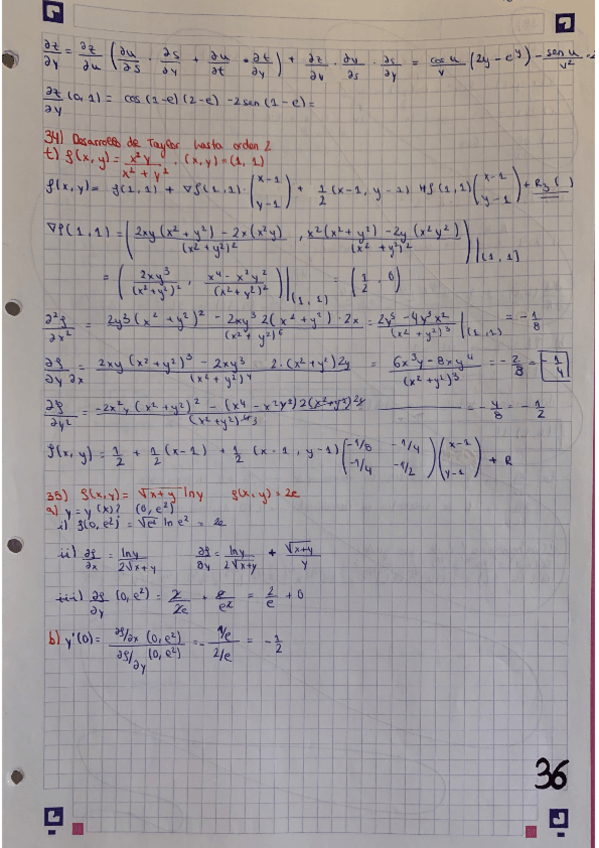 ∂z/∂y = ∂z/∂u (∂u/∂s · ∂s/∂y + ∂u/∂t · ∂t/∂y) + ∂z/∂v · ∂v/∂s · ∂s/∂y = cos u/v (2y - e^y) - sen u/v² · 2
∂z/∂y (0,1) = cos (1-e)(2-e) - 2sen (1-e) =
34) Desarrollo de Taylor hasta orden 2
t) f(x,y) = x²y/(x²+y²) . (x,y) = (1,1)
f(x,y) = f(1,1) + ∇f(1,1)·(x-1 y-1) + 1/2 (x-1, y-1) Hf(1,1) (x-1 y-1) + R₃( )
∇f(1,1) = (2xy(x²+y²) - 2x(x²y)/(x²+y²)², x²(x²+y²) - 2y(x²y²)/(x²+y²)²)|(1,1)
= (2xy³/(x²+y²)², x⁴-x²y²/(x²+y²)²)|(1,1) = (1/2, 0)
∂²f/∂x² = 2y³(x²+y²)² - 2xy³ 2(x²+y²)·2x/(x²+y²)⁶ = 2y⁵ - 4y³x²/(x²+y²)³ |(1,1) = -1/8
∂f/∂y ∂x = 2xy(x²+y²)³ - 2xy³ 2·(x²+y²)2y/(x²+y²)⁴ = 6x³y - 8xy⁴/(x²+y²)³ = -2/8 = -1/4
∂f/∂y² = -2x²y(x²+y²)² - (x⁴-x²y²)2(x²+y²)2y/(x²+y²)⁴³ = -4/8 = -1/2
f(x,y) = 1/2 + 1/2(x-1) + 1/2 (x-1, y-1) (-1/8 -1/4 -1/4 -1/2)(x-1 y-1) + R
35) f(x,y) = √x+y lny f(x,y) = 2e
a) y = y(x)? (0,e²)
i) f(0,e²) = √e² ln e² = 2e
ii) ∂f/∂x = lny/2√x+y ∂f/∂y = lny/2√x+y + √x+y/y
iii) ∂f/∂y (0,e²) = 2/2e + e/e² = 2/e ≠ 0
b) y'(0) = ∂f/∂x (0,e²)/∂f/∂y (0,e²) = - 1/e/2/e = -1/2
36